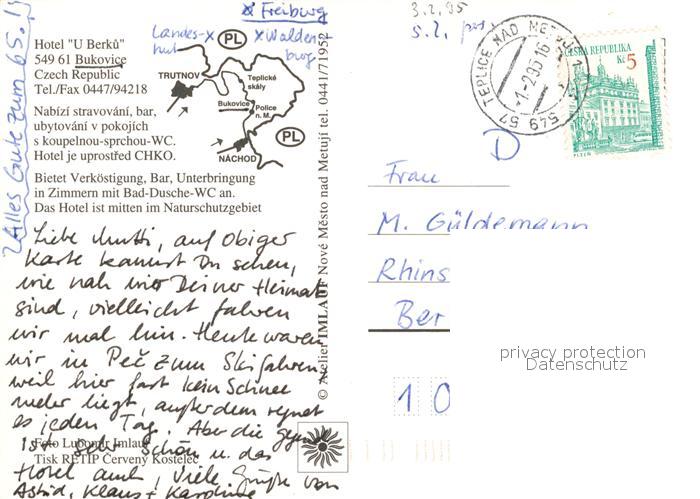 x Freiburg
Landes-x
hut
x Walden
burg
3.2.95
Hotel "U Berků"
549 61 Bukovice
Czech Republic
Tel./Fax 0447/94218
Nabízí stravování, bar,
ubytování v pokojích
s koupelnou-sprchou-WC.
Hotel je uprostřed CHKO.
Bietet Verköstigung, Bar, Unterbringung
in Zimmern mit Bad-Dusche-WC an.
Das Hotel ist mitten im Naturschutzgebiet
PL
TRUTNOV
Teplické
skály
Bukovice
Police
n. M.
PL
NÁCHOD
Alles Gute zum 65.!
Liebe Mutti, auf obiger
Karte kannst Du sehen,
wie nah wir Deiner Heimat
sind, vielleicht fahren
wir mal hin. Heute waren
wir in Peč zum Skifahren,
weil hier fast kein Schnee
mehr liegt, außerdem regnet
es jeden Tag. Aber die Gegend
ist sehr schön u. das
Hotel auch, Viele Grüße von
Astrid, Klaus + Karoline
Foto Lubomír Imlauf
Tisk RETIP Červený Kostelec
© Atelier IMLAUF Nové Město nad Metují tel. 0441/71952
549 57 TEPLICE NAD METUJÍ
-1.-2.95-16
ČESKÁ REPUBLIKA
Kč 5
PLZEŇ
D
Frau
M. Güldemann
Rhins
Ber
10
privacy protection
Datenschutz